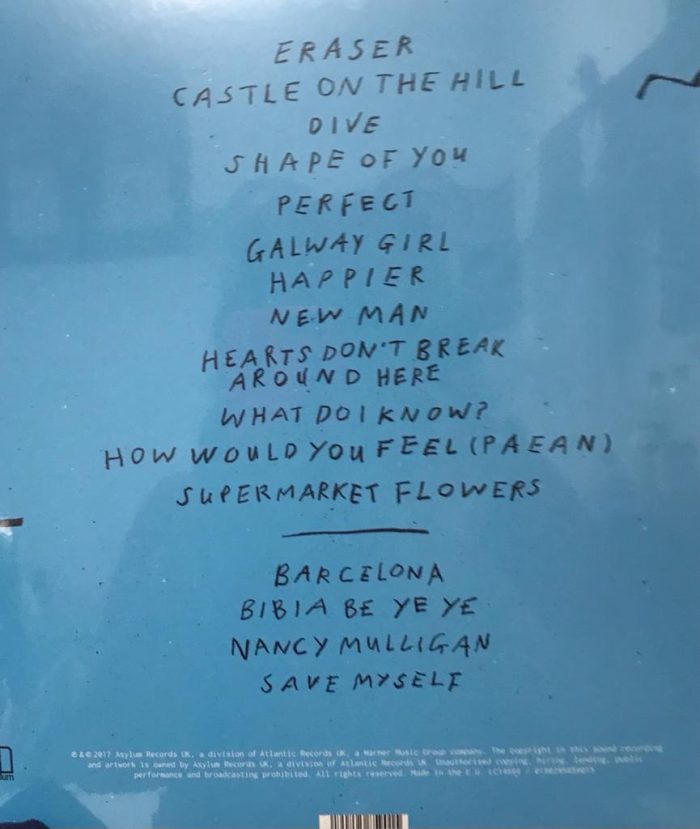 ERASER
CASTLE ON THE HILL
DIVE
SHAPE OF YOU
PERFECT
GALWAY GIRL
HAPPIER
NEW MAN
HEARTS DON'T BREAK
AROUND HERE
WHAT DO I KNOW?
HOW WOULD YOU FEEL (PAEAN)
SUPERMARKET FLOWERS
BARCELONA
BIBIA BE YE YE
NANCY MULLIGAN
SAVE MYSELF
℗ & © 2017 Asylum Records UK, a division of Atlantic Records UK, a Warner Music Group company. The copyright in this sound recording
and artwork is owned by Asylum Records UK, a division of Atlantic Records UK. Unauthorised copying, hiring, lending, public
performance and broadcasting prohibited. All rights reserved. Made in the E.U.